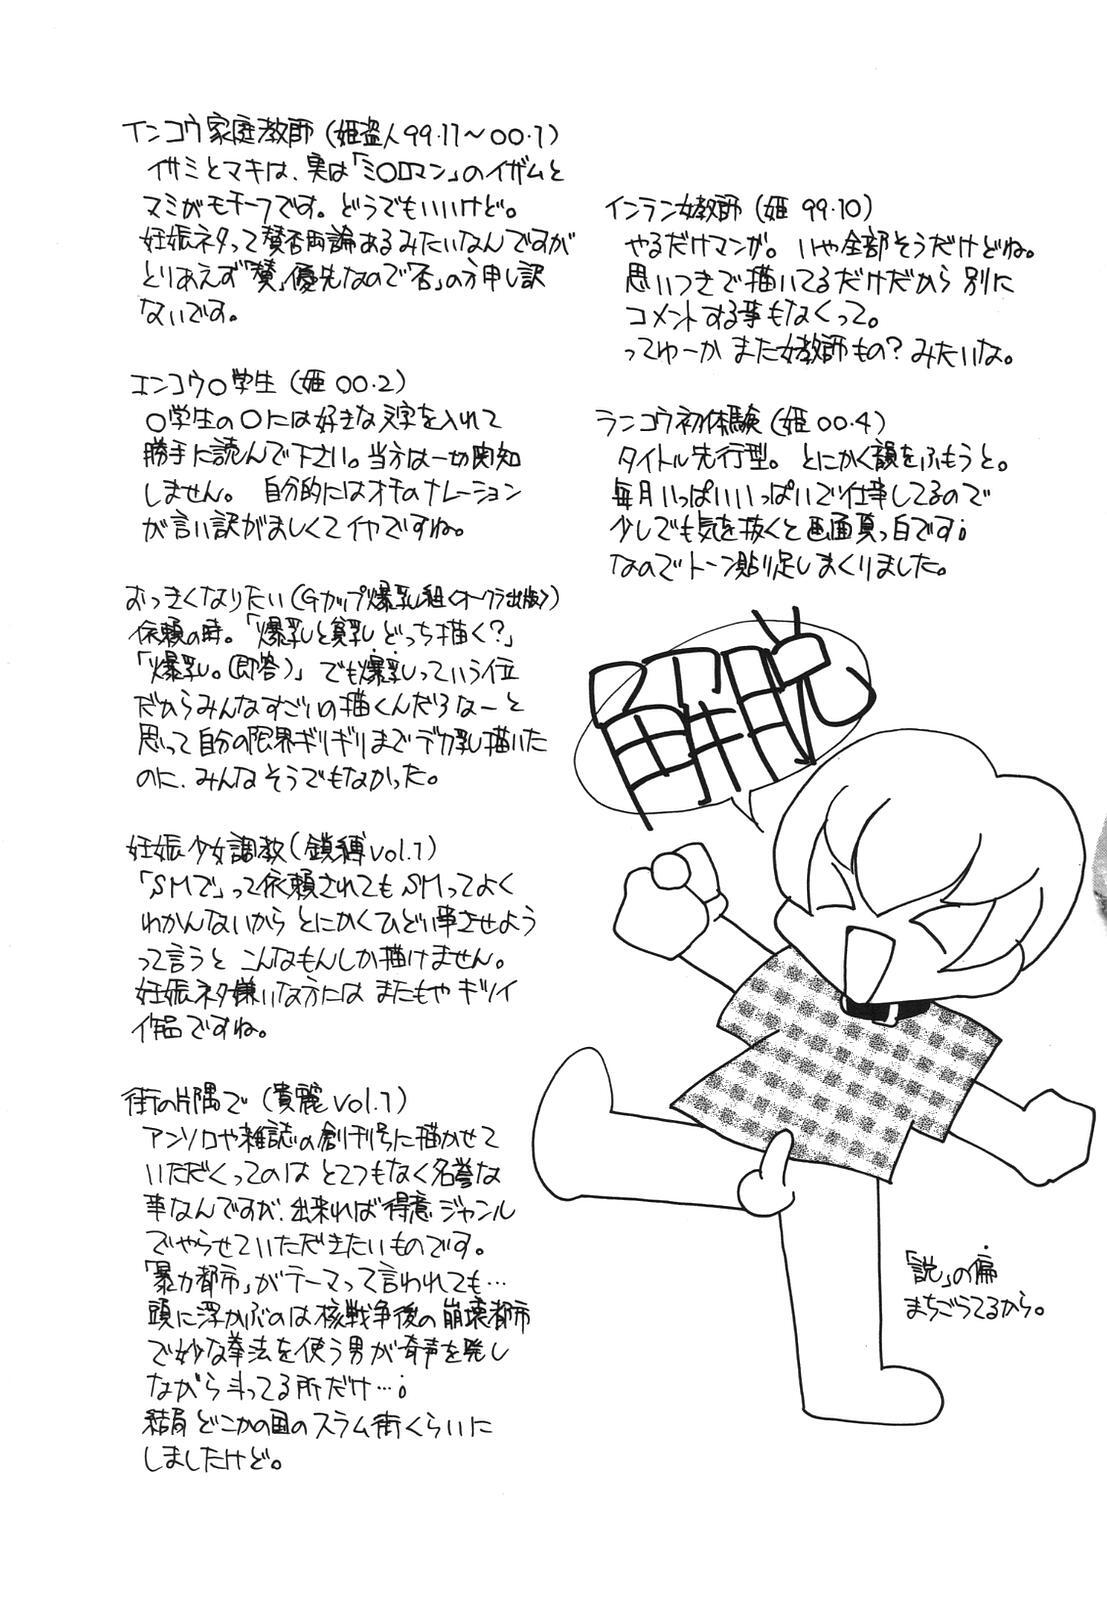 インコウ家庭教師(姫盗人99.11～00.1)
イサミとマキは、実は「ミ〇ロマン」のイザムと
マミがモチーフです。どうでもいいけど。
妊娠ネタって賛否両論あるみたいなんですが
とりあえず「賛」優先なので「否」の方申し訳
ないです。
エンコウ〇学生(姫00.2)
〇学生の〇には好きな文字を入れて
勝手に読んで下さい。当方は一切関知
しません。自分的にはオチのナレーション
が言い訳がましくてイヤですね。
おっきくなりたい(Gカップ爆乳組<オークラ出版>)
依頼の時。「爆乳と貧乳どっち描く?」
「爆乳。(即答)」でも爆乳っていう位
だからみんなすごいの描くんだろなーと
思って自分の限界ギリギリまでデカ乳描いた
のに、みんなそうでもなかった。
妊娠少女調教(鎖縛vol.1)
「SMで」って依頼されてもSMってよく
わかんないからとにかくひどい事させよう
って言うとこんなもんしか描けません。
妊娠ネタ嫌いな方にはまたもやキツイ
作品ですね。
街の片隅で(貴麗vol.1)
アンソロや雑誌の創刊号に描かせて
いただくってのはとてつもなく名誉な
事なんですが、出来れば得意ジャンル
でやらせていただきたいものです。
「暴力都市」がテーマって言われても…
頭に浮かぶのは核戦争後の崩壊都市
で妙な拳法を使う男が奇声を発し
ながら斗ってる所だけ…!
結局どこかの国のスラム街くらいに
しましたけど。
インラン女教師(姫99.10)
やるだけマンガ。いや全部そうだけどね。
思いつきで描いてるだけだから別に
コメントする事もなくって。
ってゆーかまた女教師もの?みたいな。
ランコウ初体験(姫00.4)
タイトル先行型。とにかく韻をふもうと。
毎月いっぱいいっぱいで仕事してるので
少しでも気を抜くと画面真っ白です!
なのでトーン貼り足しまくりました。
「説」の偏
まちごうてるから。